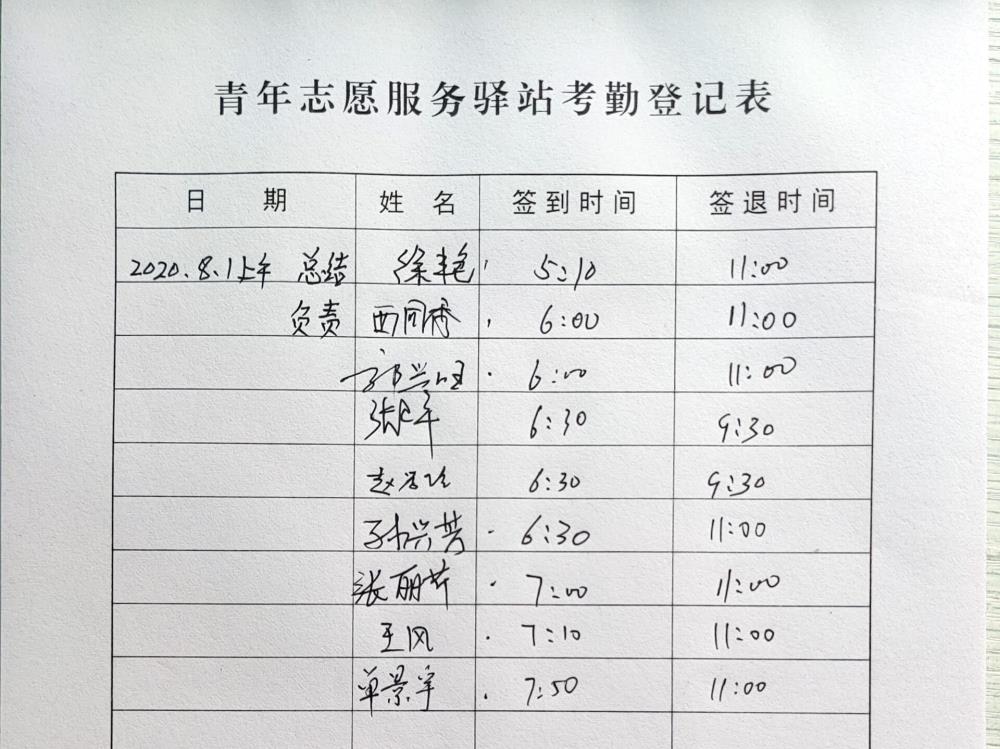 青年志愿服务驿站考勤登记表
日 期 姓 名 签到时间 签退时间
2020.8.1上午 总结 徐丰艳 5:10 11:00
负责 西同秀 6:00 11:00
郭兴旺 6:00 11:00
张 6:30 9:30
赵 6:30 9:30
孙兴芳 6:30 11:00
张丽芹 7:00 11:00
王风 7:10 11:00
单景宇 7:50 11:00